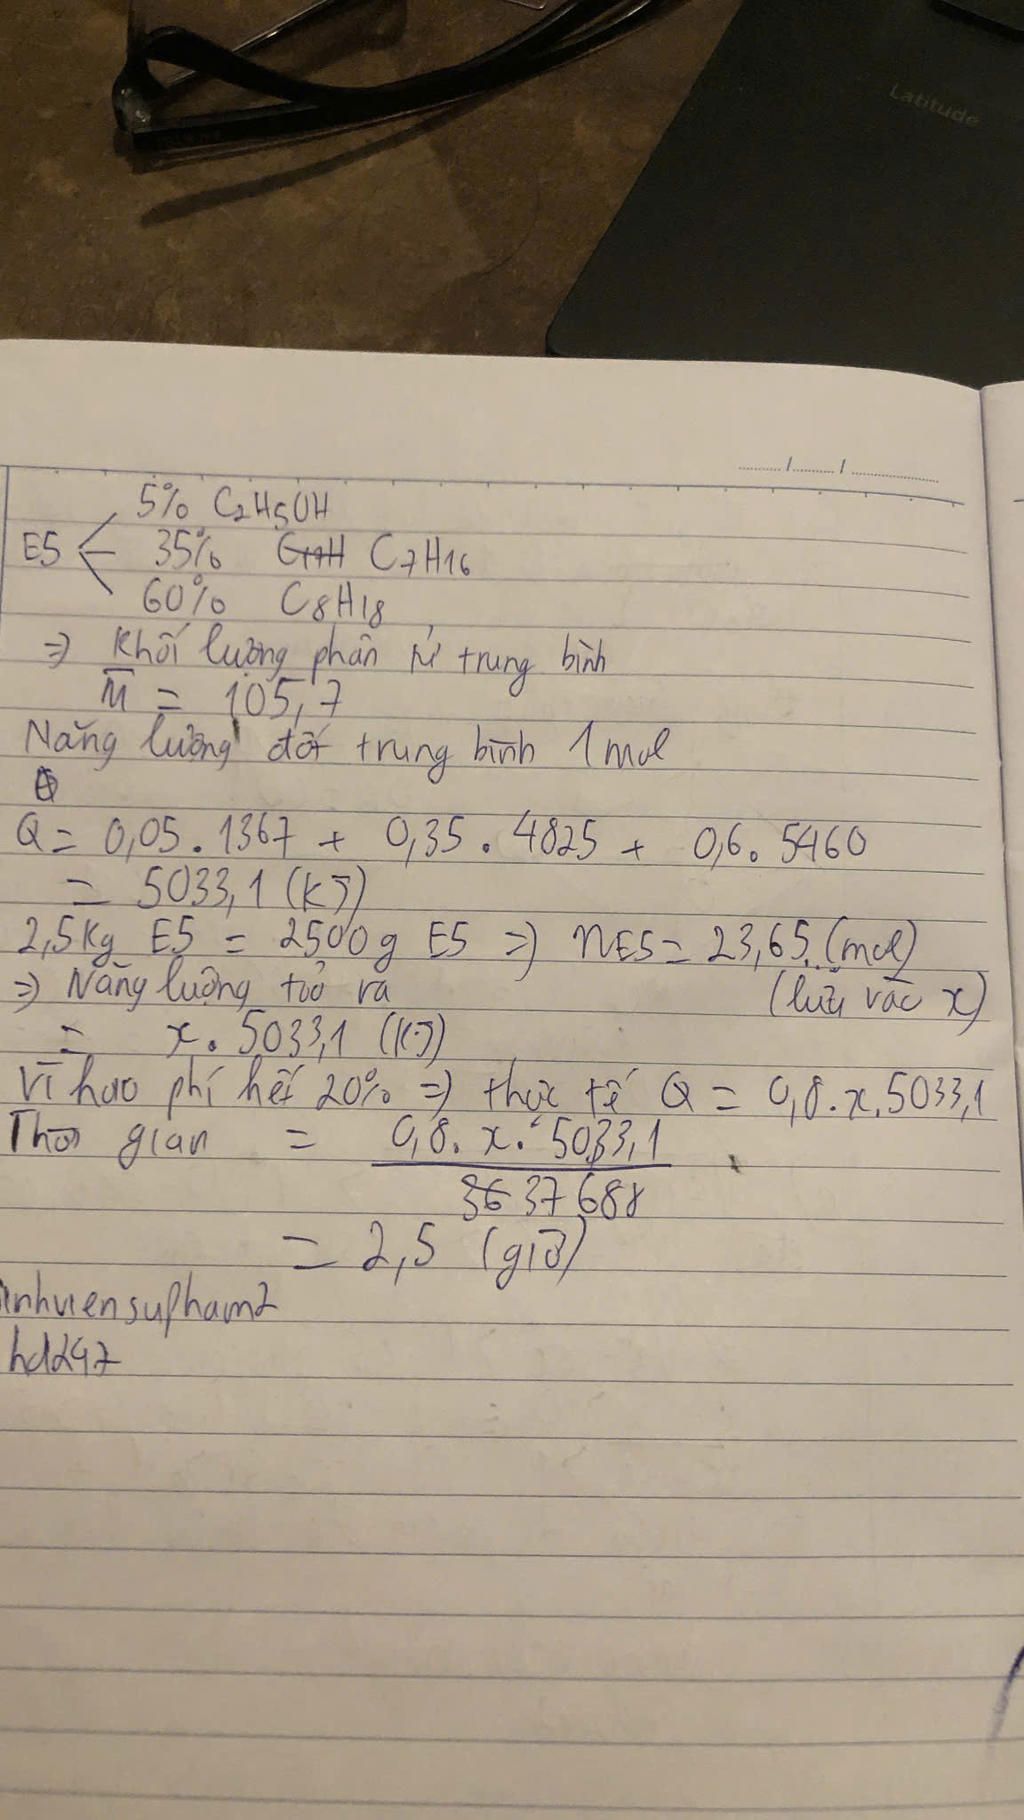 Latitude
5% C2H5OH
E5 35% C7H16
60% C8H18
=> Khối lượng phân tử trung bình
M = 105,7
Năng lượng đốt trung bình 1 mol
Q = 0,05 . 1367 + 0,35 . 4825 + 0,6 . 5460
= 5033,1 (kJ)
2,5kg E5 = 2500g E5 => nE5 = 23,65 (mol)
=> Năng lượng toả ra (lưu vào x)
= x . 5033,1 (kJ)
Vì hao phí hết 20% => thực tế Q = 0,8 . x . 5033,1
Thời gian = 0,8 . x . 5033,1
37688
= 2,5 (giờ)
inhviensupham2
hd247